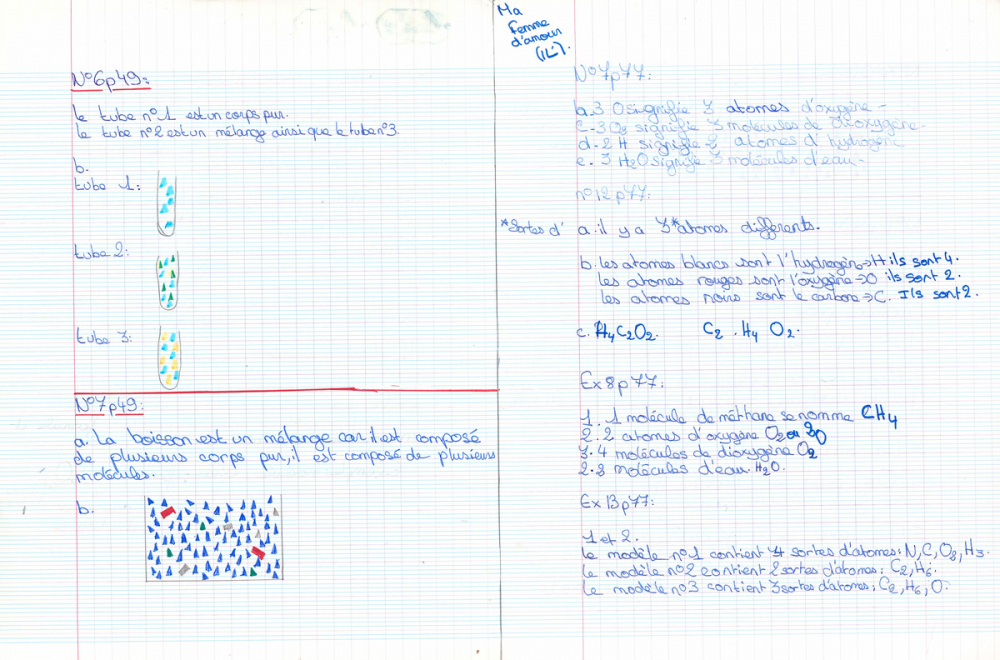 N°6p49:
Le tube n°1 est un corps pur.
Le tube n°2 est un mélange ainsi que le tube n°3.
b.
tube 1:
tube 2:
tube 3:
N°7p49:
a. La boisson est un mélange car il est composé
de plusieurs corps pur, il est composé de plusieurs
molécules.
b.
Ma
femme
d'amour
N°7p77:
a.3 O signifie 3 atomes d'oxygène -
C-3O₃ signifie 3 molécules de dioxygène-
d-2 H signifie 2 atomes d'hydrogène
e. 3 H₂O signifie 3 molécules d'eau-
n°12p77:
*Sortes d' a. il y a 3* atomes différents.
b. les atomes blancs sont l'hydrogène→H ils sont 4.
les atomes rouges sont l'oxygène→O ils sont 2.
les atomes noirs sont le carbone→C. Ils sont 2.
c. H₄C₂O₂. C₂ . H₄ O₂.
Ex 8p77:
1. 1 molécule de méthane se nomme CH₄
2. 2 atomes d'oxygène O₂ ou 2O
3. 4 molécules de dioxygène O₂
2. 3 molécules d'eau. H₂O.
Ex 13p77:
1 et 2.
le modèle n°1 contient 4 sortes d'atomes: N,C,O₈,H₃.
le modèle n°2 contient 2 sortes d'atomes; C₂,H₆.
le modèle n°3 contient 3 sortes d'atomes; C₂,H₆,O.